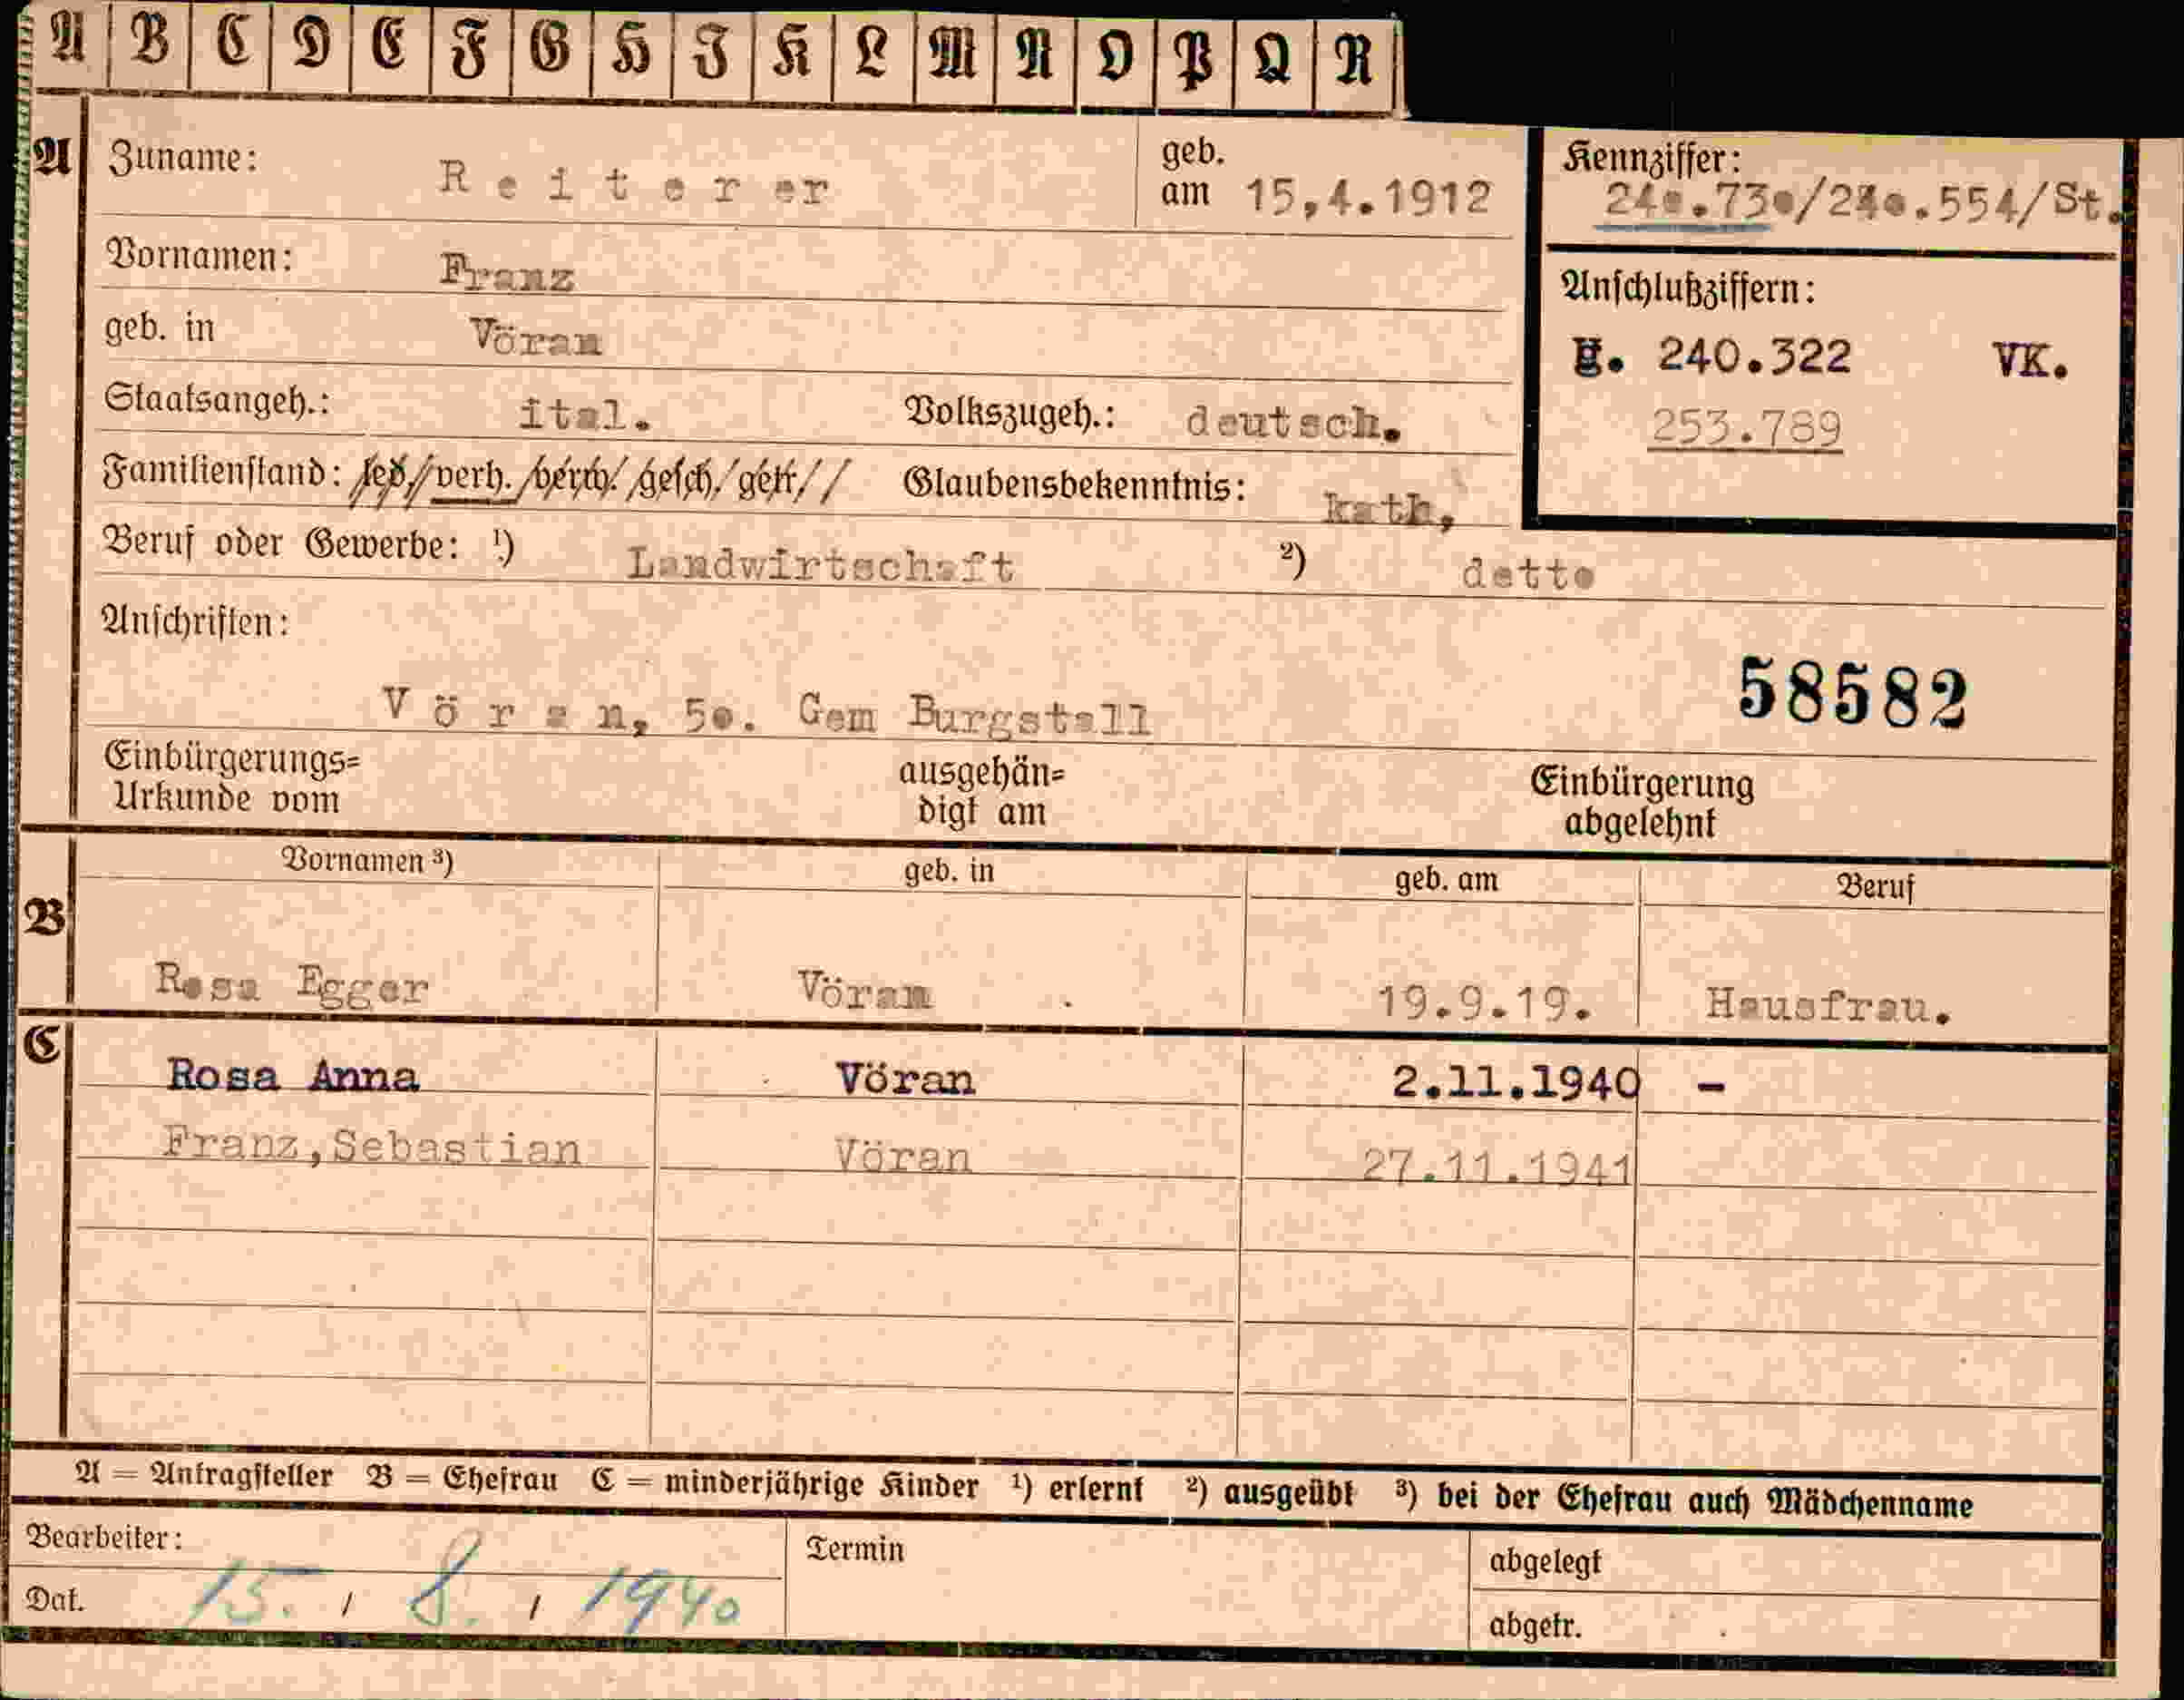 A B C D E F G H I K L M N O P Q R
A Zuname: Reiterer geb. am 15,4.1912 Kennziffer: 240.730/240.554/St.
Vornamen: Franz
geb. in Vöran
Anschlußziffern:
240.322 VK.
253.789
Staatsangeh.: ital. Volkszugeh.: deutsch.
Familienstand: led./verh./verw./gesch./getr./ Glaubensbekenntnis: kath,
Beruf oder Gewerbe: ¹) Landwirtschaft ²) detto
Anschriften:
58582
Vöran, 50. Gem Burgstall
Einbürgerungs= Urkunde vom ausgehän= digt am Einbürgerung abgelehnt
B Vornamen ³) geb. in geb. am Beruf
Rosa Egger Vöran 19.9.19. Hausfrau.
C Rosa Anna Vöran 2.11.1940 -
Franz,Sebastian Vöran 27.11.1941
A = Antragsteller B = Ehefrau C = minderjährige Kinder ¹) erlernt ²) ausgeübt ³) bei der Ehefrau auch Mädchenname
Bearbeiter: Termin abgelegt
Dat. 15. / 8. / 1940 abgetr.